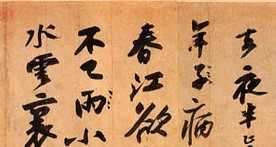 去夜半
年子病
春江欲
不已雨小
水雲裏